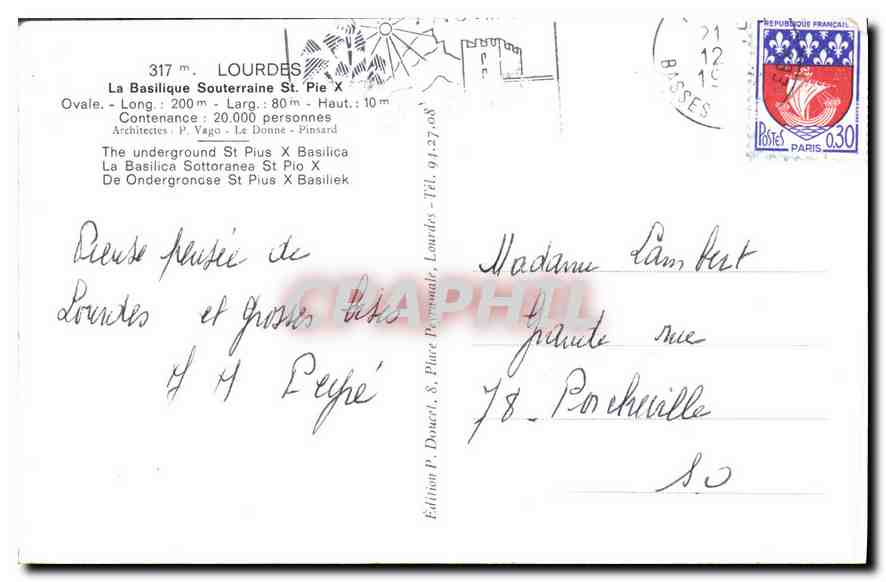 317 m. LOURDES
La Basilique Souterraine St. Pie X
Ovale. - Long.: 200 m - Larg.: 80 m - Haut.: 10 m
Contenance : 20.000 personnes
Architectes : P. Vago - Le Donné - Pinsard
The underground St Pius X Basilica
La Basilica Sottoranea St Pio X
De Ondergrondse St Pius X Basiliek
Pieuse pensée de
Lourdes et grosses bises
Peyré
Edition P. Doucet, 8, Place Peyramale, Lourdes - Tél. 94.27.08
21
12
19
BASSES
REPUBLIQUE FRANÇAISE
POSTES
0,30
PARIS
Madame Lambert
Grande rue
78 - Porcheville
SO
CPAPHIL